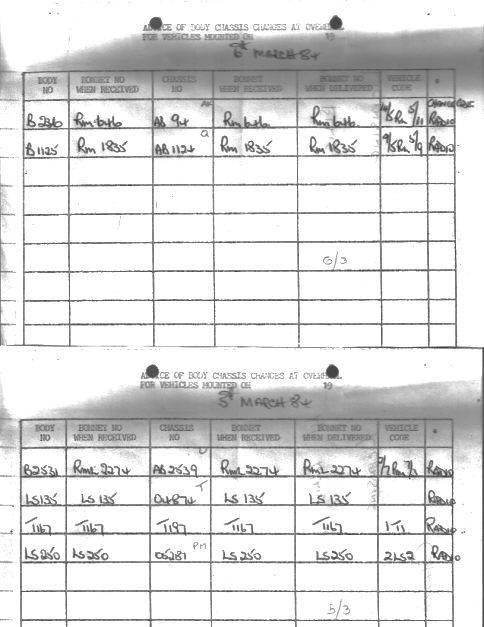 ADVICE OF BODY CHASSIS CHANGES AT OVERHAUL
FOR VEHICLES MOUNTED ON 19
6th MARCH 84
BODY NO BONNET NO WHEN RECEIVED CHASSIS NO BONNET WHEN RECEIVED BONNET NO WHEN DELIVERED VEHICLE CODE *
CHANGE CODE
B236 Rm646 AB 94 Rm646 Rm646 RADIO
B1125 Rm 1835 AB 1124 Q Rm 1835 Rm 1835 RADIO
6/3
ADVICE OF BODY CHASSIS CHANGES AT OVERHAUL
FOR VEHICLES MOUNTED ON 19
5th MARCH 84
BODY NO BONNET NO WHEN RECEIVED CHASSIS NO BONNET WHEN RECEIVED BONNET NO WHEN DELIVERED VEHICLE CODE *
B2531 RmL 2274 AB2539 U RmL 2274 RmL 2274 RADIO
LS135 LS 135 04874 T LS 135 LS 135 RADIO
T1167 T1167 T1197 T1167 T1167 1-T1 RADIO
LS250 LS250 05281 PM LS250 LS250 2LS2 RADIO
5/3